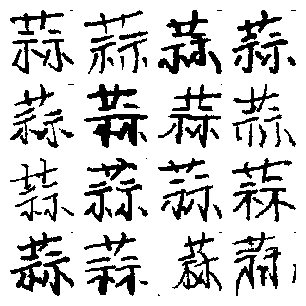 蒜蒜蒜蒜
蒜蒜蒜蒜
蒜蒜蒜蒜
蒜蒜蒜蒜